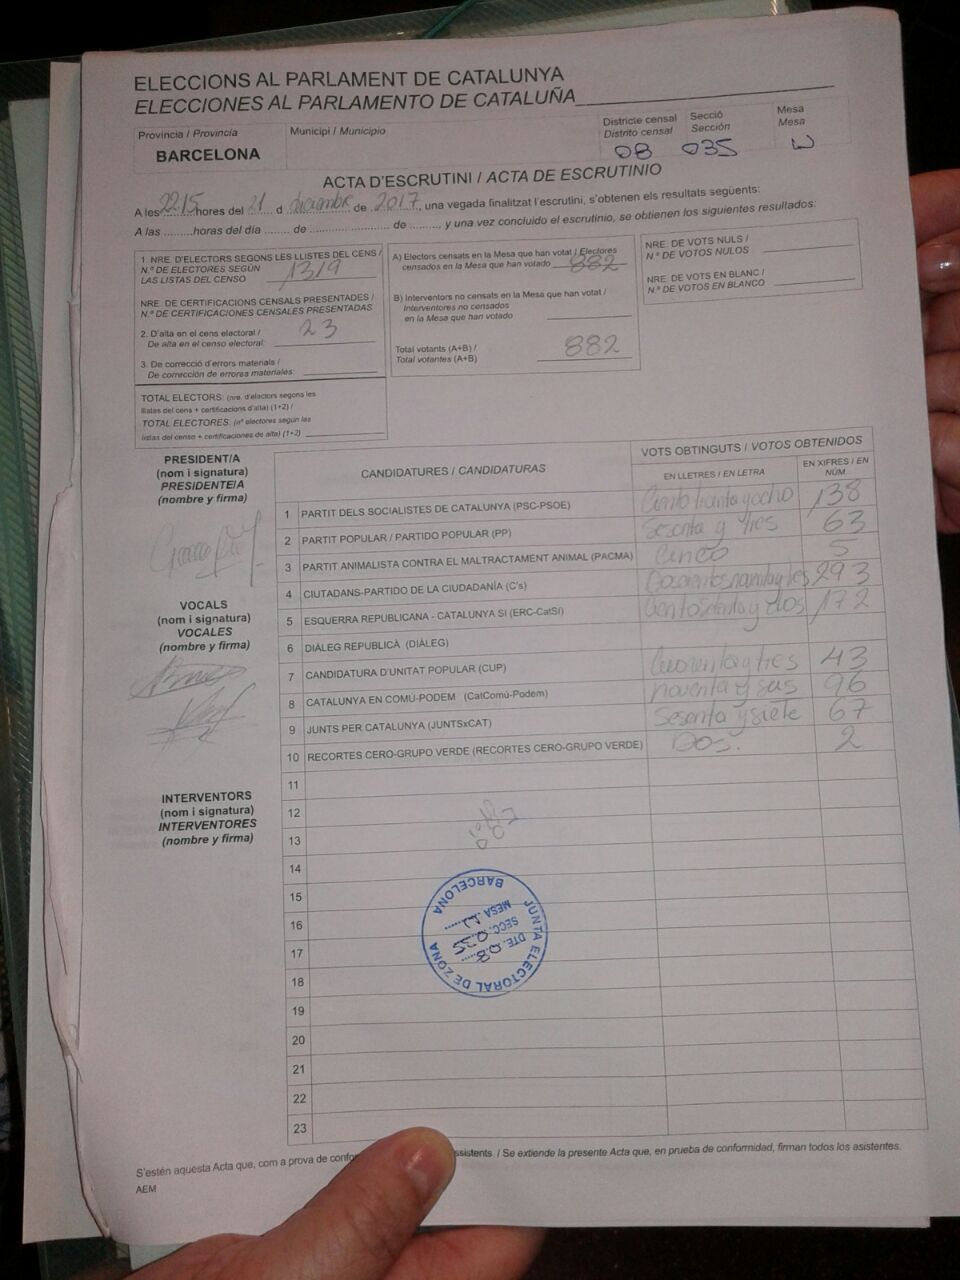 ELECCIONS AL PARLAMENT DE CATALUNYA
ELECCIONES AL PARLAMENTO DE CATALUÑA
Provincia / Provincia
BARCELONA
Municipi / Municipio
Districte censal
Distrito censal
08
Secció
Sección
035
Mesa
Mesa
U
ACTA D'ESCRUTINI / ACTA DE ESCRUTINIO
A les 22 15 hores del 21 d diciembre de 2017, una vegada finalitzat l'escrutini, s'obtenen els resultats següents:
A las ......... horas del día ........ de ........................ de ........, y una vez concluido el escrutinio, se obtienen los siguientes resultados:
1. NRE. D'ELECTORS SEGONS LES LLISTES DEL CENS /
N.º DE ELECTORES SEGÚN
LAS LISTAS DEL CENSO 1319
NRE. DE CERTIFICACIONS CENSALS PRESENTADES /
N.º DE CERTIFICACIONES CENSALES PRESENTADAS
2. D'alta en el cens electoral /
De alta en el censo electoral: 23
3. De correcció d'errors materials /
De corrección de errores materiales:
TOTAL ELECTORS: (nre. d'electors segons les
llistes del cens + certificacions d'alta) (1+2) /
TOTAL ELECTORES: (nº electores según las
listas del censo + certificaciones de alta) (1+2)
A) Electors censats en la Mesa que han votat / Electores
censados en la Mesa que han votado 882
B) Interventors no censats en la Mesa que han votat /
Interventores no censados
en la Mesa que han votado
Total votants (A+B) /
Total votantes (A+B) 882
NRE. DE VOTS NULS /
N.º DE VOTOS NULOS
NRE. DE VOTS EN BLANC /
N.º DE VOTOS EN BLANCO
PRESIDENT/A
(nom i signatura)
PRESIDENTE/A
(nombre y firma)
VOCALS
(nom i signatura)
VOCALES
(nombre y firma)
INTERVENTORS
(nom i signatura)
INTERVENTORES
(nombre y firma)
CANDIDATURES / CANDIDATURAS
VOTS OBTINGUTS / VOTOS OBTENIDOS
EN LLETRES / EN LETRA
EN XIFRES / EN NÚM.
1 PARTIT DELS SOCIALISTES DE CATALUNYA (PSC-PSOE) Ciento treinta y ocho 138
2 PARTIT POPULAR / PARTIDO POPULAR (PP) Sesenta y tres 63
3 PARTIT ANIMALISTA CONTRA EL MALTRACTAMENT ANIMAL (PACMA) Cinco 5
4 CIUTADANS-PARTIDO DE LA CIUDADANÍA (C's) 293
5 ESQUERRA REPUBLICANA - CATALUNYA SÍ (ERC-CatSí) 172
6 DIÀLEG REPUBLICÀ (DIÀLEG)
7 CANDIDATURA D'UNITAT POPULAR (CUP) Cuarenta y tres 43
8 CATALUNYA EN COMÚ-PODEM (CatComú-Podem) noventa y seis 96
9 JUNTS PER CATALUNYA (JUNTSxCAT) Sesenta y siete 67
10 RECORTES CERO-GRUPO VERDE (RECORTES CERO-GRUPO VERDE) Dos. 2
11
12
13
14
15
16
17
18
19
20
21
22
23
JUNTA ELECTORAL DE ZONA
BARCELONA
DTE. 08
SECC. 035
MESA U
S'estén aquesta Acta que, com a prova de assistents. / Se extiende la presente Acta que, en prueba de conformidad, firman todos los asistentes.
AEM